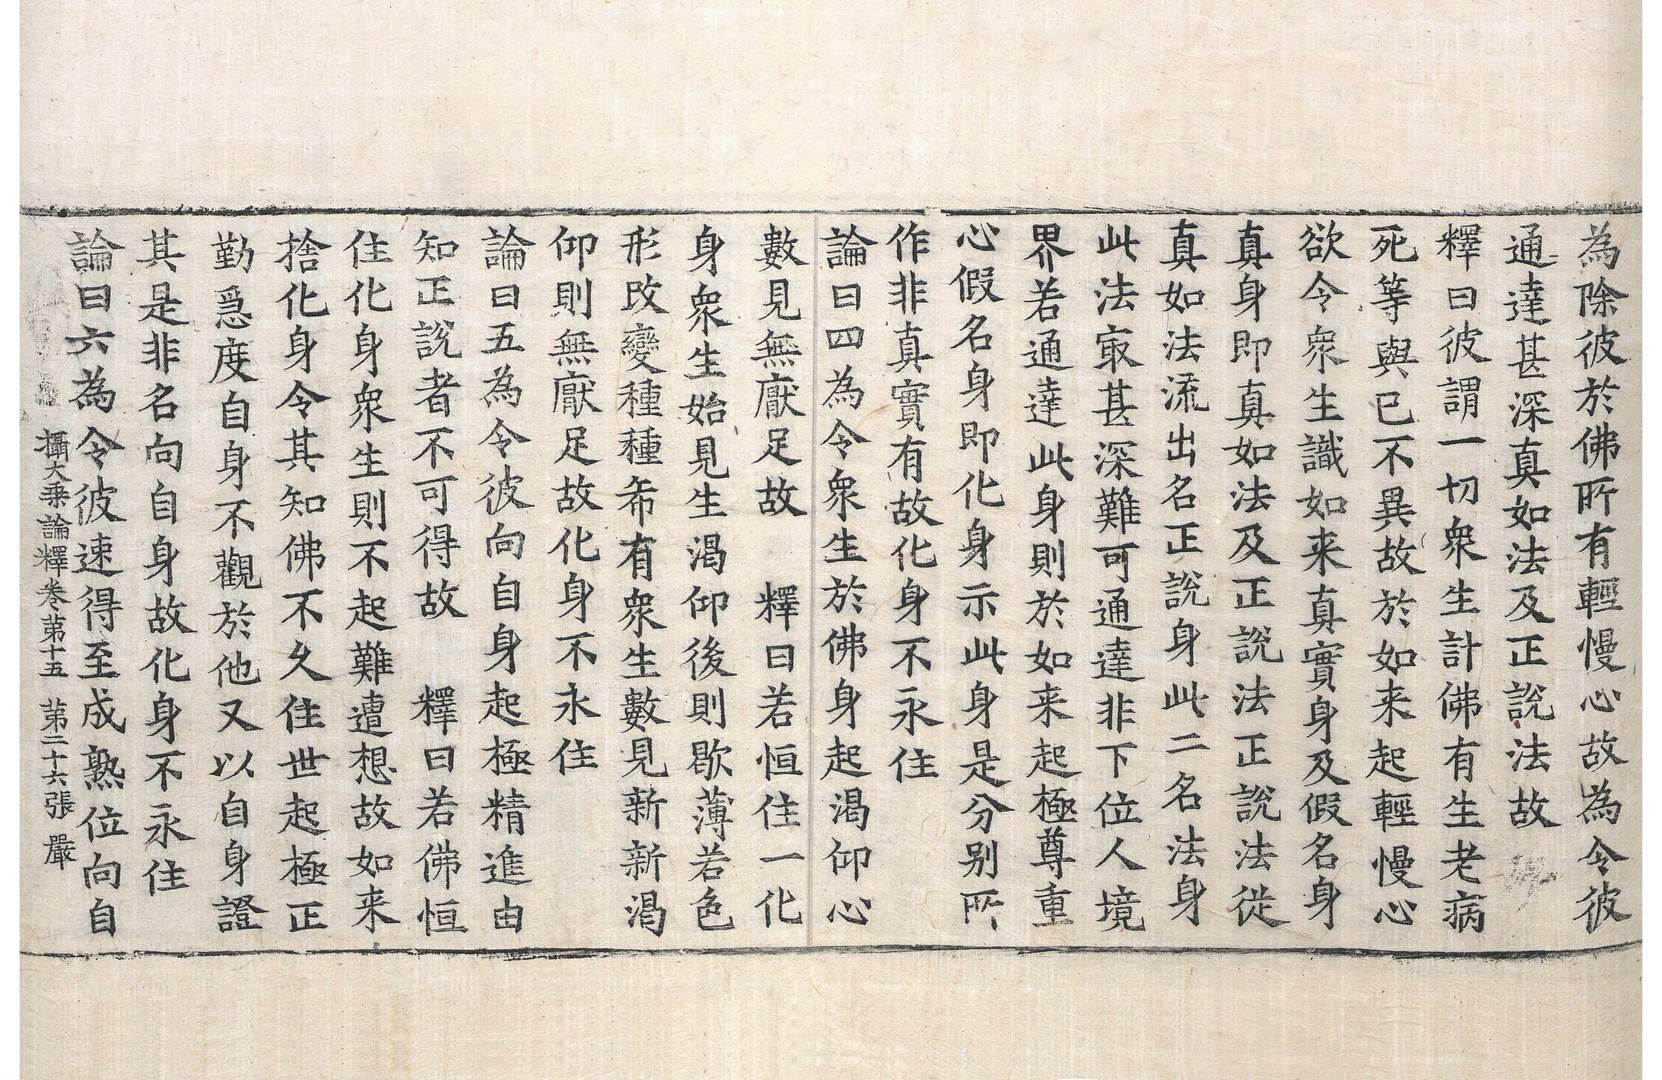 為除彼於佛所有輕慢心故為令彼
通達甚深真如法及正說法故
釋曰彼謂一切衆生計佛有生老病
死等與已不異故於如来起輕慢心
欲令衆生識如来真實身及假名身
真身即真如法及正說法正說法從
真如法流出名正說身此二名法身
此法冣甚深難可通達非下位人境
界若通達此身則於如来起極尊重
心假名身即化身示此身是分别所
作非真實有故化身不永住
論曰四為令衆生於佛身起渴仰心
數見無厭足故　釋曰若恒住一化
身衆生始見生渴仰後則歇薄若色
形改變種種希有衆生數見新新渴
仰則無厭足故化身不永住
論曰五為令彼向自身起極精進由
知正說者不可得故　釋曰若佛恒
住化身衆生則不起難遭想故如来
捨化身令其知佛不久住世起極正
勤急度自身不觀於他又以自身證
其是非名向自身故化身不永住
論曰六為令彼速得至成熟位向自
攝大乗論釋卷第十五　第二十六張　嚴